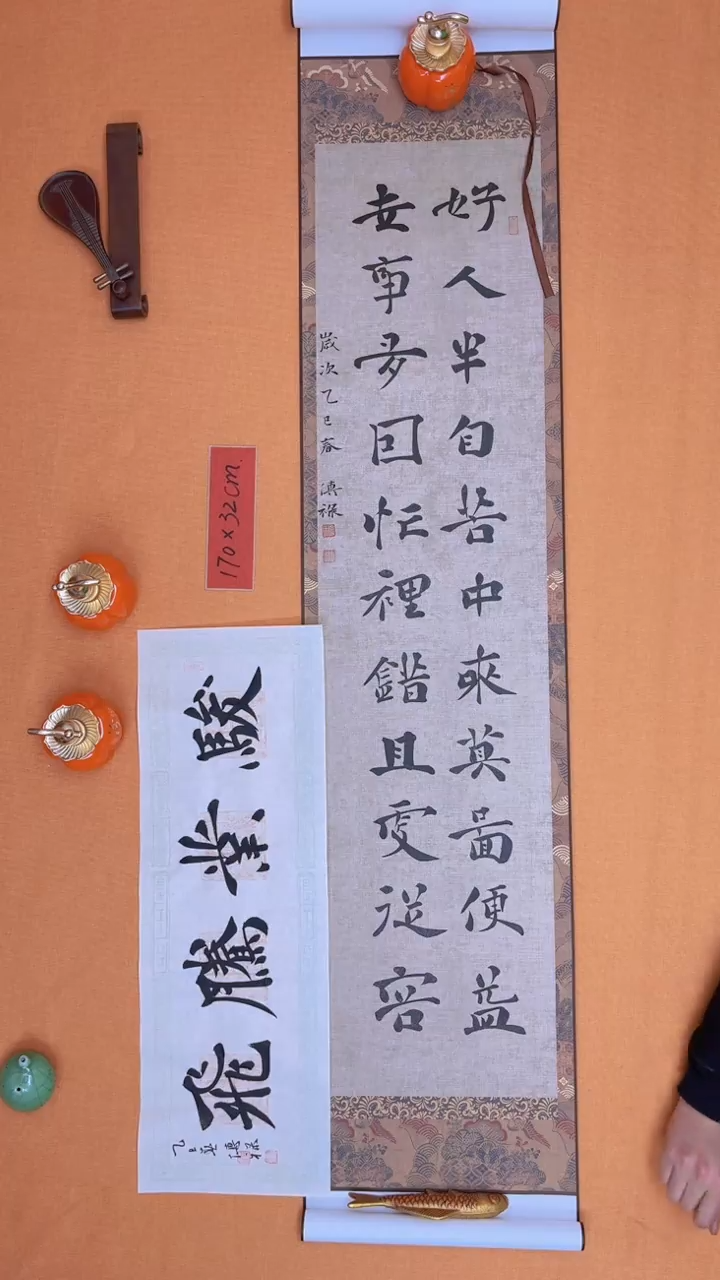 好人半自苦中來莫啚便益
世事多因忙裡錯且更從容
歲次乙巳春
170×32cm.
駿業騰飛